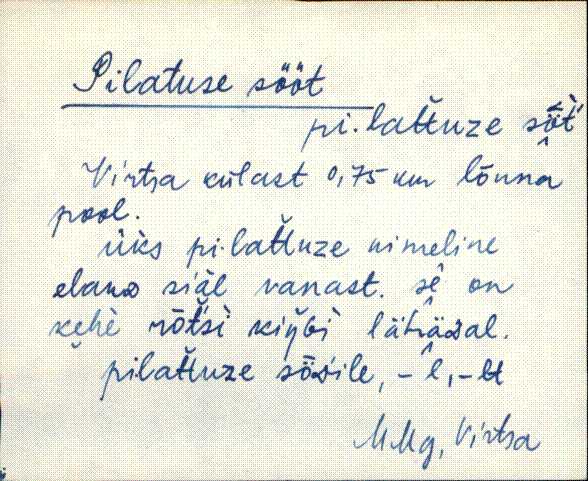 Pilatuse sööt
pi·lattuze sö̭̀t́
Virtsa külast 0,75 km lõuna
pool.
üks pi·lattuze nimeline
elanᴅ siäl vanast. sê on
kehè rõt́sì kiŋ̆Gì lähäDal.
pilattuze söD́ile, -l, -lt
MMg, Virtsa